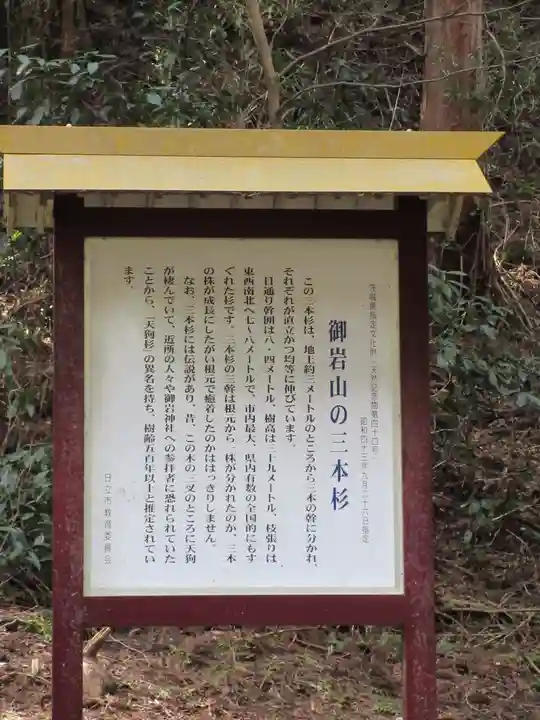 茨城県指定文化財(天然記念物第四十四号)
昭和四十三年九月二十六日指定
御岩山の三本杉
この三本杉は、地上約三メートルのところから三本の幹に分かれ、
それぞれが直立かつ均等に伸びています。
目通り幹囲は八・四メートル、樹高は三十九メートル、枝張りは
東西南北へ七〜八メートルで、市内最大、県内有数の全国的にもす
ぐれた杉です。三本杉の三幹は根元から一株が分かれたのか、三本
の株が成長にしたがい根元で癒着したのかははっきりしません。
なお、三本杉には伝説があり、昔、この木の三叉のところに天狗
が棲んでいて、近所の人々や御岩神社への参拝者に恐れられていた
ことから、「天狗杉」の異名を持ち、樹齢五百年以上と推定されてい
ます。
日立市教育委員会